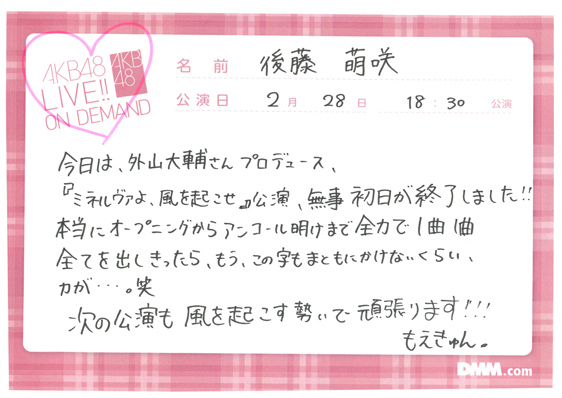 AKB48
LIVE!!
ON DEMAND
AKB
48
名前 後藤 萌咲
公演日 2月 28日 18:30 公演
今日は、外山大輔さんプロデュース、
『ミネルヴァよ、風を起こせ』公演、無事初日が終了しました!!
本当にオープニングからアンコール明けまで全力で1曲1曲
全てを出しきったら、もう、この字もまともにかけないくらい、
力が・・・。笑
次の公演も風を起こす勢いで頑張ります!!!
もえきゅん。
DMM.com